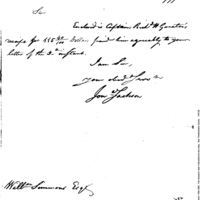 Sir
Enclosed is Captain Rich. W. Greaton's
receipt for 445 Dollars, paid him agreeably to your
letter of the 2. instant.
I am Sir,
your obed. Serv.
Jon. Jackson
William Simmons Esq.